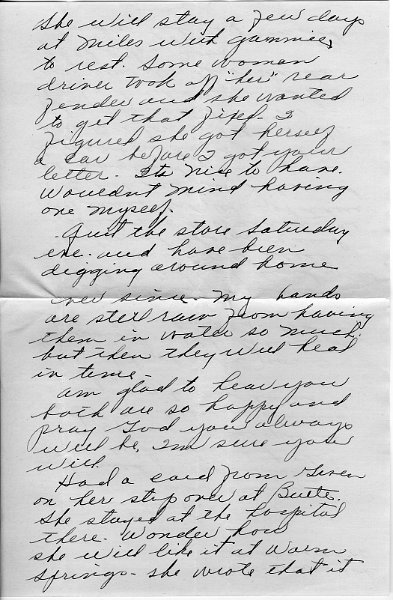 She will stay a few days
at Miles with Gammie,
to rest. Some woman
driver took off "her" rear
fender and she wanted
to get that fixed. I
figured she got herself
a car before I got your
letter. Its nice to have.
Wouldnt mind having
one myself.
Quit the store Saturday
eve. and have been
digging around home
ever since. My hands
are still raw from having
them in water so much.
but then they will heal
in time.
Am glad to hear you
both are so happy and
pray God you always
will be. I'm sure you
will.
Had a card from
on her stop over at Butte.
She stayed at the hospital
there. Wonder how
she will like it at Warm
Springs. She wrote that it